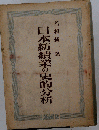 日本紡績業の史的分析